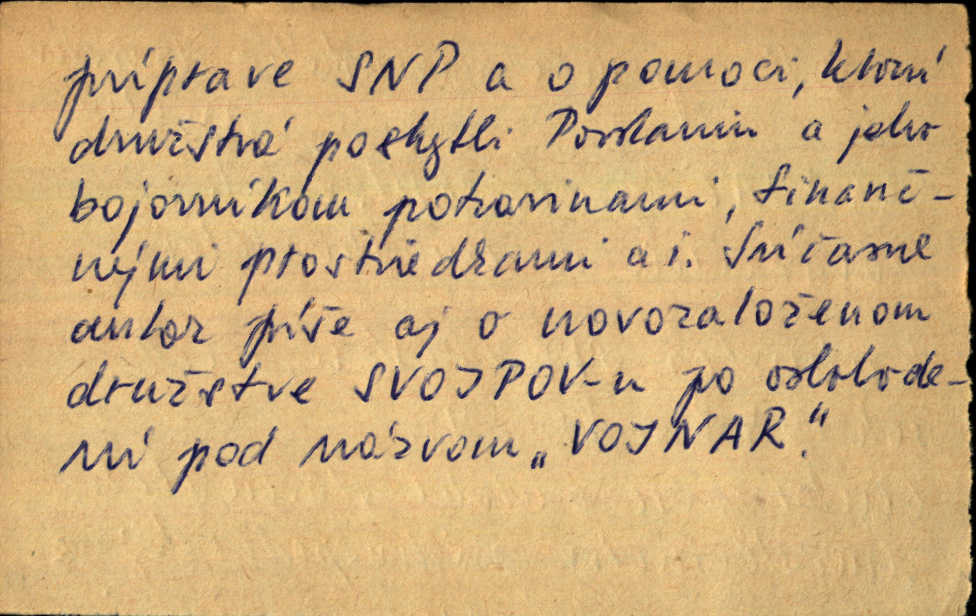 príprave SNP a o pomoci, ktorú
družstvá poskytli Povstaniu a jeho
bojovníkom potravinami, finanč-
nými prostriedkami a i. Súčasne
autor píše aj o novozaloženom
družstve SVOJPOV-u po oslobode-
ní pod názvom „VOJNAR."